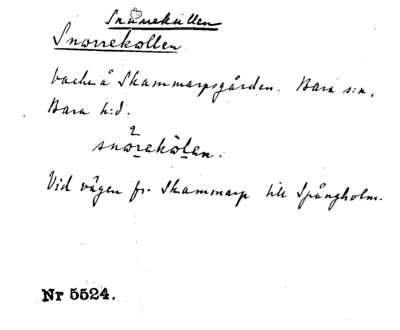 Snurrekullen
Snorrekollen
backe å Skammarpsgården. Bara s:n,
Bara h:d.
snòrekòlen.
Vid vägen fr. Skammarp till Spångholm.
Nr 5524.